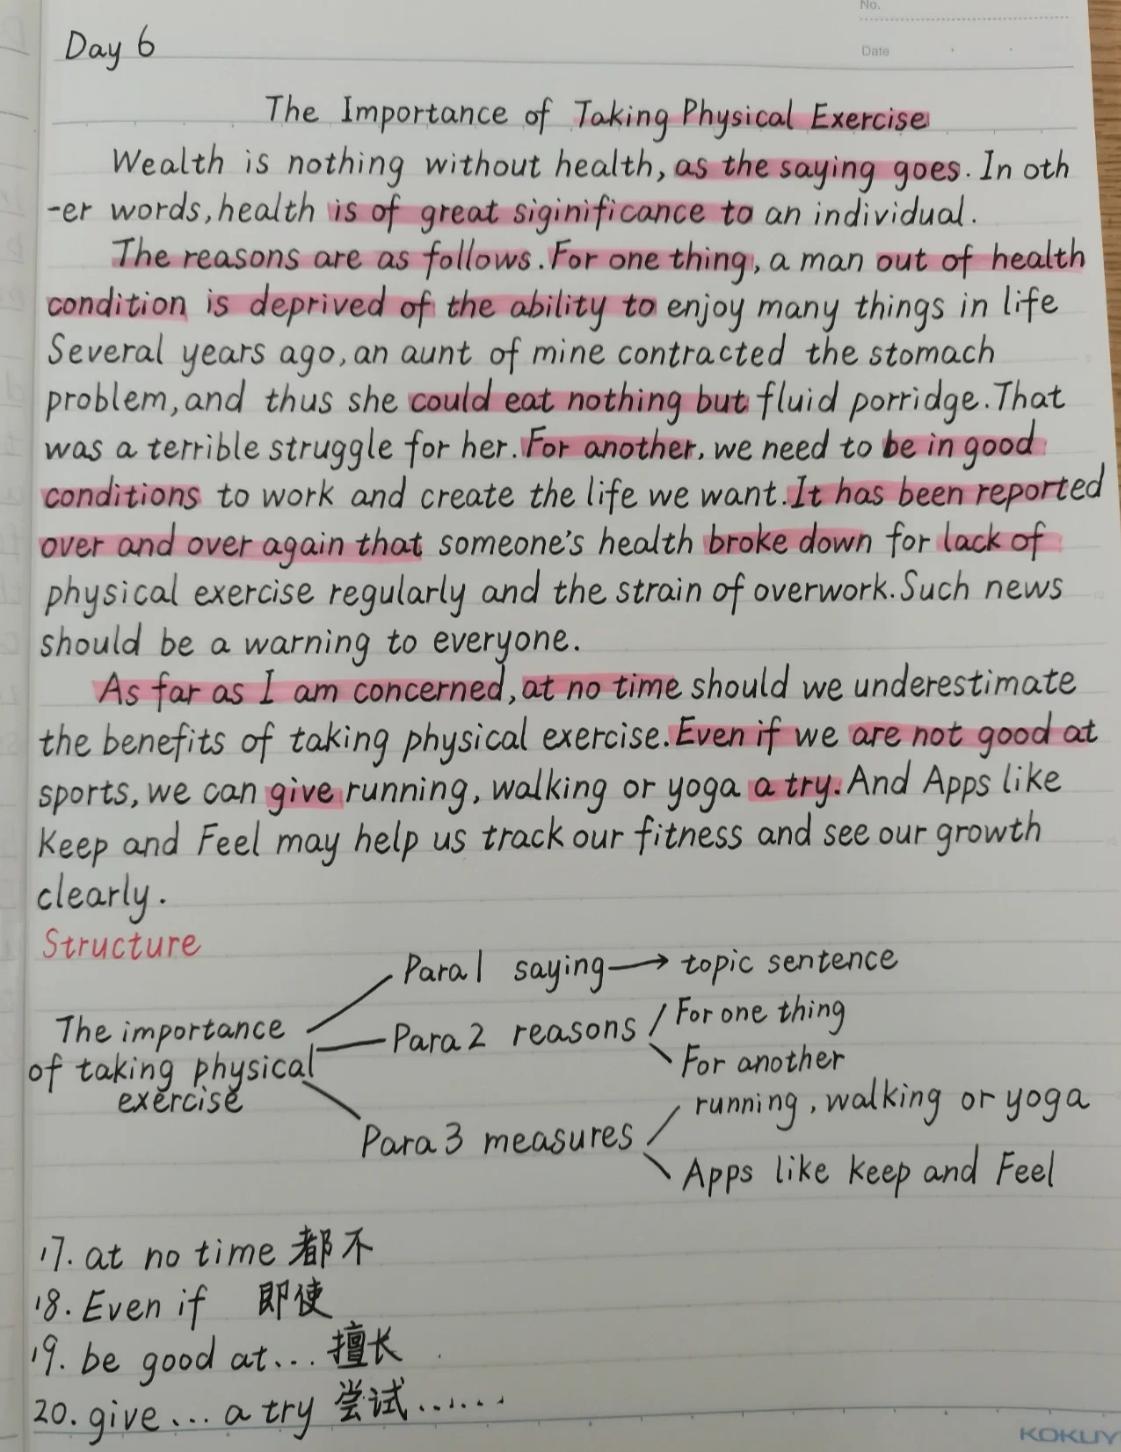 No.
Date
Day 6
The Importance of Taking Physical Exercise
Wealth is nothing without health, as the saying goes. In oth
-er words, health is of great siginificance to an individual.
The reasons are as follows. For one thing, a man out of health
condition is deprived of the ability to enjoy many things in life
Several years ago, an aunt of mine contracted the stomach
problem, and thus she could eat nothing but fluid porridge. That
was a terrible struggle for her. For another, we need to be in good
conditions to work and create the life we want. It has been reported
over and over again that someone's health broke down for lack of
physical exercise regularly and the strain of overwork. Such news
should be a warning to everyone.
As far as I am concerned, at no time should we underestimate
the benefits of taking physical exercise. Even if we are not good at
sports, we can give running, walking or yoga a try. And Apps like
Keep and Feel may help us track our fitness and see our growth
clearly.
Structure
Para 1 saying → topic sentence
The importance of taking physical exercise
Para 2 reasons
For one thing
For another
Para 3 measures
running, walking or yoga
Apps like keep and Feel
17. at no time 都不
18. Even if 即使
19. be good at... 擅长
20. give ... a try 尝试......
KOKUY